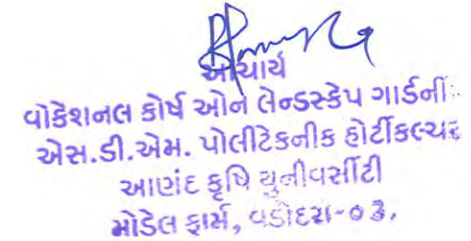 આચાર્ય
વોકેશનલ કોર્ષ ઓન લેન્ડસ્કેપ ગાર્ડનીંગ
એસ.ડી.એમ. પોલીટેકનીક હોર્ટીકલ્ચર
આણંદ કૃષિ યુનીવર્સીટી
મોડેલ ફાર્મ, વડોદરા-૦૩.